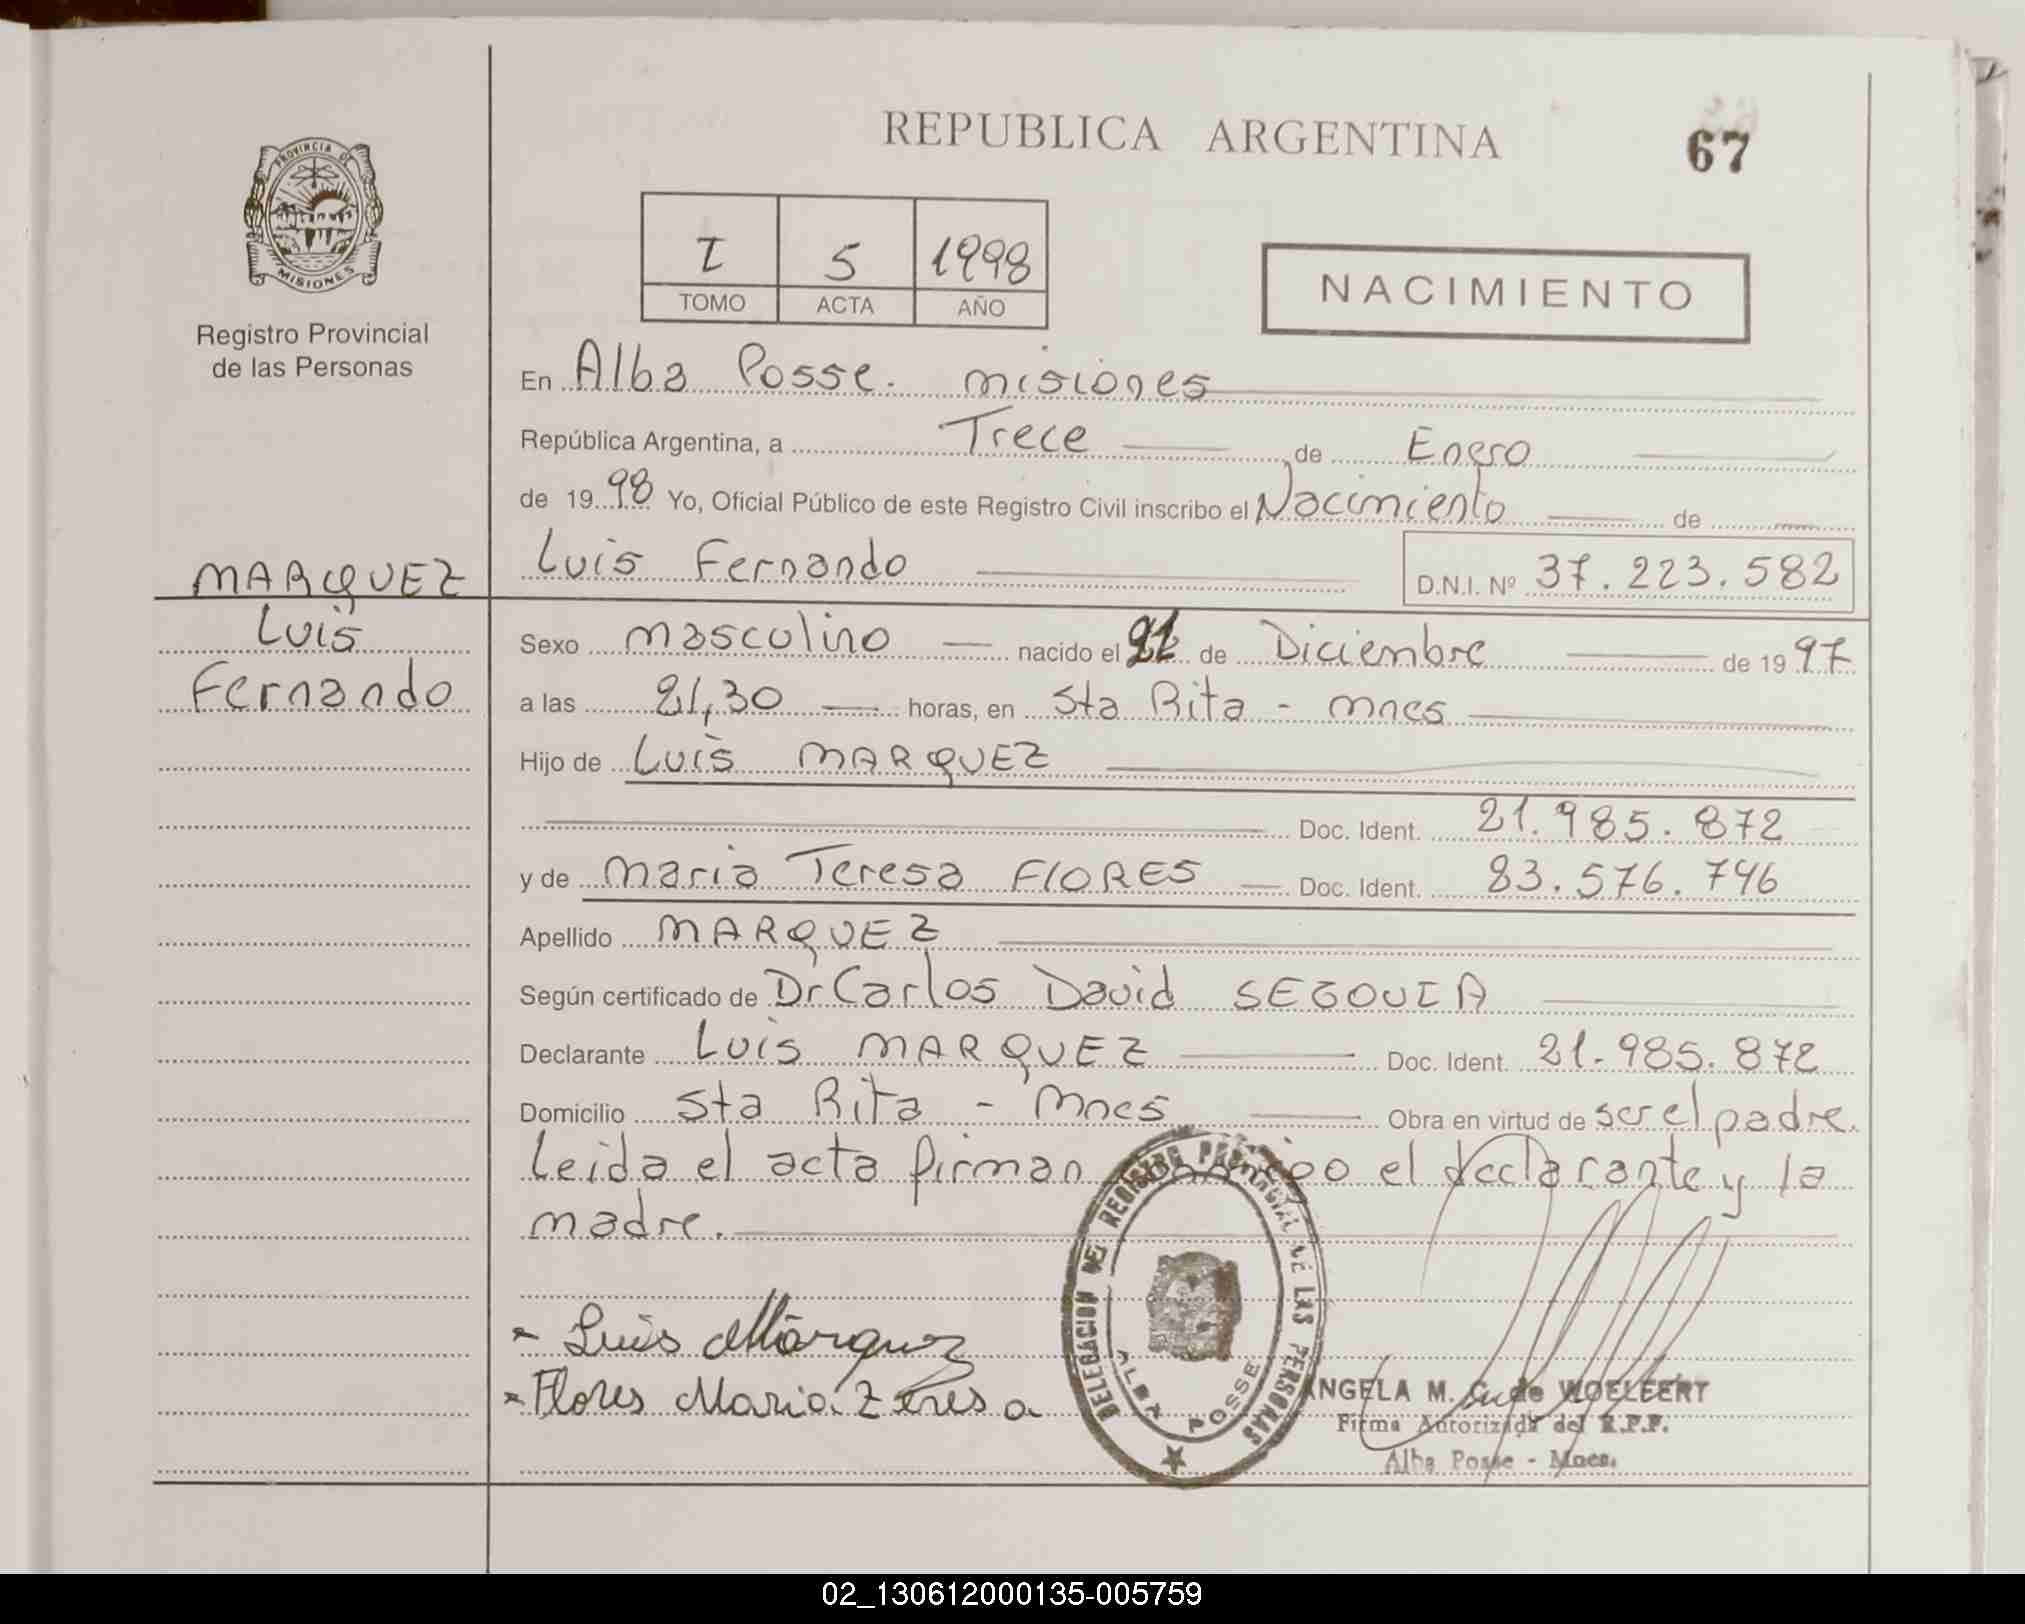 REPUBLICA ARGENTINA
67
PROVINCIA DE
MISIONES
Registro Provincial
de las Personas
I 5 1998
TOMO ACTA AÑO
NACIMIENTO
En Alba Posse. misiones
República Argentina, a Trece de Enero
de 1998 Yo, Oficial Público de este Registro Civil inscribo el Nacimiento de
Luis Fernando D.N.I. Nº 37.223.582
MARQUEZ
Luis
Fernando
Sexo masculino nacido el de Diciembre de 1997
a las 21,30 horas, en Sta Rita - Mnes
Hijo de Luis MARQUEZ
Doc. Ident. 21.985.872
y de Maria Teresa FlORES Doc. Ident. 23.576.746
Apellido MARQUEZ
Según certificado de Dr Carlos David SEGOVIA
Declarante Luis MARQUEZ Doc. Ident. 21.985.872
Domicilio Sta Rita - Mnes Obra en virtud de ser el padre.
Leida el acta firman el declarante y la
madre.
Luis Marquez
Flores Maria Teresa
DELEGACION DEL REGISTRO PROVINCIAL DE LAS PERSONAS
ALBA POSSE
ANGELA M. C. de WOELFERT
Firma Autorizada del R.P.P.
Alba Posse - Mnes.
02_130612000135-005759